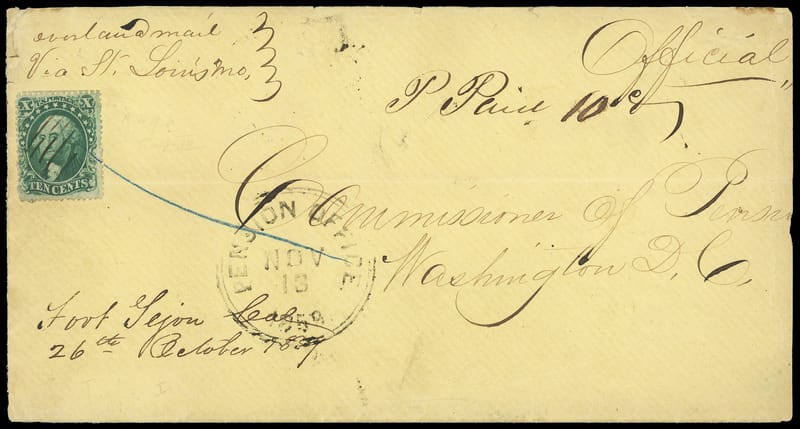 overland mail
Via St. Louis Mo,
Official
P Paid 10c
X U.S. POSTAGE X
TEN CENTS
Commissioner of Pensi
Washington D. C.
PENSION OFFICE
NOV
18
1859
Foort Tejon Cal
26th October 1859